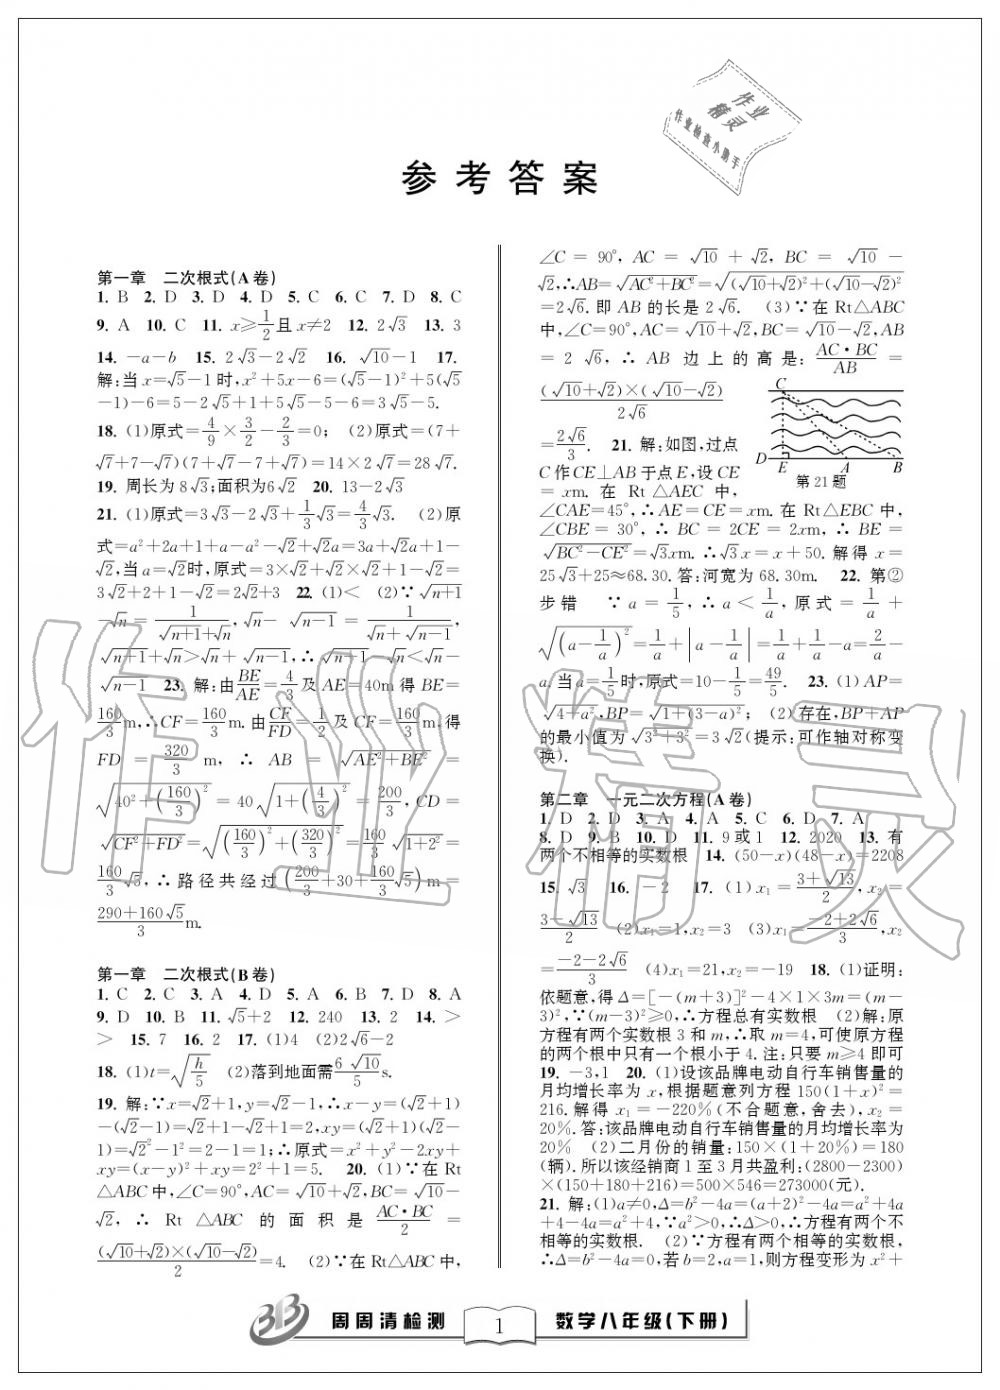 作业
精灵
作业检查小助手
参考答案
第一章 二次根式(A卷)
1. B 2. D 3. D 4. D 5. C 6. C 7. D 8. C
9. A 10. C 11. x≥1/2且x≠2 12. 2√3 13. 3
14. -a-b 15. 2√3-2√2 16. √10-1 17.
解:当x=√5-1时,x²+5x-6=(√5-1)²+5(√5
-1)-6=5-2√5+1+5√5-5-6=3√5-5.
18. (1)原式=4/9×3/2-2/3=0; (2)原式=(7+
√7+7-√7)(7+√7-7+√7)=14×2√7=28√7.
19. 周长为8√3;面积为6√2 20. 13-2√3
21. (1)原式=3√3-2√3+1/3√3=4/3√3. (2)原
式=a²+2a+1+a-a²-√2+√2a=3a+√2a+1-
√2,当a=√2时,原式=3×√2+√2×√2+1-√2=
3√2+2+1-√2=2√2+3 22. (1)< (2)∵√n+1
-√n=1/(√n+1+√n),√n-√n-1=1/(√n+√n-1),
√n+1+√n>√n+√n-1,∴√n+1-√n<√n-
√n-1 23. 解:由BE/AE=4/3及AE=40m得BE=
160/3m,∴CF=160/3m.由CF/FD=1/2及CF=160/3m,得
FD=320/3m,∴AB=√(AE²+BE²)=
√(40²+(160/3)²)=40√(1+(4/3)²)=200/3,CD=
√(CF²+FD²)=√((160/3)²+(320/3)²)=160/3√(1+2²)=
160/3√5,∴路径共经过(200/3+30+160/3√5)m=
(290+160√5)/3m.
第一章 二次根式(B卷)
1. C 2. C 3. A 4. D 5. A 6. B 7. D 8. A
9. D 10. B 11. √5+2 12. 240 13. 2 14. >
> 15. 7 16. 2 17. (1)4 (2)2√6-2
18. (1)t=√(h/5) (2)落到地面需6√10/5s.
19. 解:∵x=√2+1,y=√2-1,∴x-y=(√2+1)
-(√2-1)=√2+1-√2+1=2,xy=(√2+1)(√2-
1)=√2²-1²=2-1=1;∴原式=x²+y²-2xy+
xy=(x-y)²+xy=2²+1=5. 20. (1)∵在Rt
△ABC中,∠C=90°,AC=√10+√2,BC=√10-
√2,∴Rt△ABC的面积是AC·BC/2=
(√10+√2)×(√10-√2)/2=4. (2)∵在Rt△ABC中,
∠C=90°,AC=√10+√2,BC=√10-
√2,∴AB=√(AC²+BC²)=√((√10+√2)²+(√10-√2)²)
=2√6.即AB的长是2√6. (3)∵在Rt△ABC
中,∠C=90°,AC=√10+√2,BC=√10-√2,AB
=2√6,∴AB边上的高是:AC·BC/AB=
(√10+√2)×(√10-√2)/2√6
=2√6/3. 21. 解:如图,过点
C作CE⊥AB于点E,设CE
=xm.在Rt△AEC中,
C
D E A B
第21题
∠CAE=45°,∴AE=CE=xm.在Rt△EBC中,
∠CBE=30°,∴BC=2CE=2xm,∴BE=
√(BC²-CE²)=√3xm.∴√3x=x+50.解得x=
25√3+25≈68.30.答:河宽为68.30m. 22. 第②
步错 ∵a=1/5,∴a<1/a,原式=1/a+
√((a-1/a)²)=1/a+|a-1/a|=1/a+1/a-a=2/a-
a.当a=1/5时,原式=10-1/5=49/5. 23. (1)AP=
√(4+a²),BP=√(1+(3-a)²); (2)存在,BP+AP
的最小值为√(3²+3²)=3√2(提示:可作轴对称变
换).
第二章 一元二次方程(A卷)
1. D 2. D 3. A 4. A 5. C 6. D 7. A
8. D 9. B 10. D 11. 9或1 12. 2020 13. 有
两个不相等的实数根 14. (50-x)(48-x)=2208
15. √3 16. -2 17. (1)x₁=(3+√13)/2,x₂=
(3-√13)/2 (2)x₁=1,x₂=3 (3)x₁=(-2+2√6)/3,x₂
=(-2-2√6)/3 (4)x₁=21,x₂=-19 18. (1)证明:
依题意,得Δ=[-(m+3)]²-4×1×3m=(m-
3)²,∵(m-3)²≥0,∴方程总有实数根 (2)解:原
方程有两个实数根3和m,∴取m=4,可使原方程
的两个根中只有一个根小于4.注:只要m≥4即可
19. -3,1 20. (1)设该品牌电动自行车销售量的
月均增长率为x,根据题意列方程150(1+x)²=
216.解得x₁=-220%(不合题意,舍去),x₂=
20%.答:该品牌电动自行车销售量的月均增长率为
20% (2)二月份的销量:150×(1+20%)=180
(辆).所以该经销商1至3月共盈利:(2800-2300)
×(150+180+216)=500×546=273000(元).
21. 解:(1)a≠0,Δ=b²-4a=(a+2)²-4a=a²+4a
+4-4a=a²+4,∵a²>0,∴Δ>0,∴方程有两个不
相等的实数根. (2)∵方程有两个相等的实数根,
∴Δ=b²-4a=0,若b=2,a=1,则方程变形为x²+
周周清检测
1
数学八年级(下册)
作业精灵